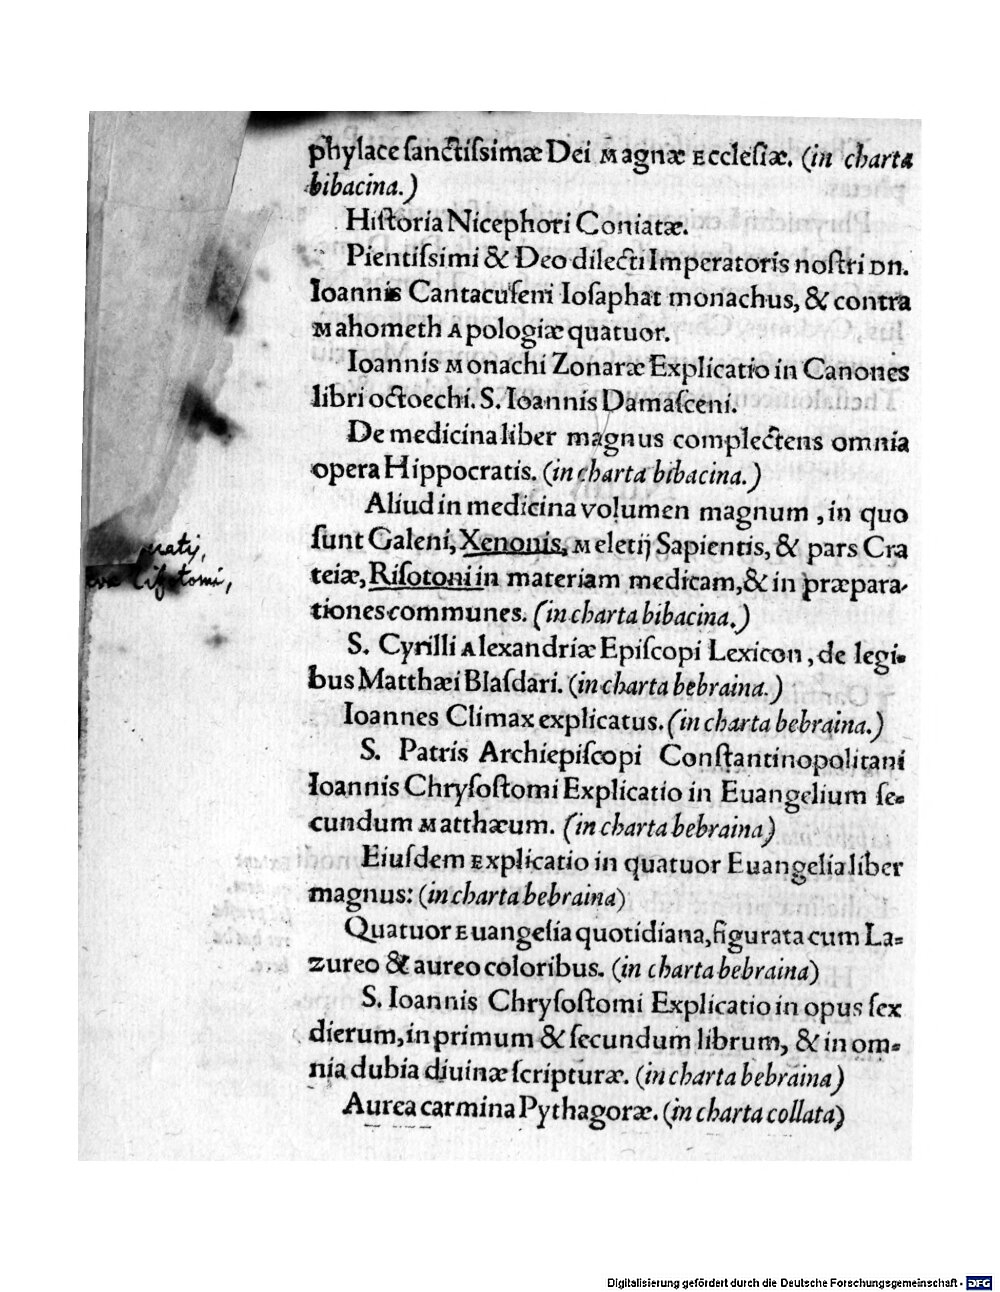 phylace ſanctiſsimæ Dei Magnæ Eccleſiæ. (in charta
bibacina.)
Hiſtoria Nicephori Coniatæ.
Pientiſsimi & Deo dilecti Imperatoris noſtri DN.
Ioannis Cantacuſeni Ioſaphat monachus, & contra
Mahometh Apologiæ quatuor.
Ioannis Monachi Zonaræ Explicatio in Canones
libri octoechi. S. Ioannis Damaſceni.
De medicina liber magnus complectens omnia
opera Hippocratis. (in charta bibacina.)
Aliud in medicina volumen magnum, in quo
ſunt Galeni, Xenonis, Meletij Sapientis, & pars Cra
teiæ, Riſotoni in materiam medicam, & in præpara-
tiones communes. (in charta bibacina.)
S. Cyrilli Alexandriæ Epiſcopi Lexicon, de legi-
bus Matthæi Blaſdari. (in charta bebraina.)
Ioannes Climax explicatus. (in charta bebraina.)
S. Patris Archiepiſcopi Conſtantinopolitani
Ioannis Chryſoſtomi Explicatio in Euangelium ſe-
cundum Matthæum. (in charta bebraina)
Eiuſdem Explicatio in quatuor Euangelia liber
magnus: (in charta bebraina)
Quatuor Euangelia quotidiana, figurata cum La-
zureo & aureo coloribus. (in charta bebraina)
S. Ioannis Chryſoſtomi Explicatio in opus ſex
dierum, in primum & ſecundum librum, & in om-
nia dubia diuinæ ſcripturæ. (in charta bebraina)
Aurea carmina Pythagoræ. (in charta collata)
Digitalisierung gefördert durch die Deutsche Forschungsgemeinschaft - DFG